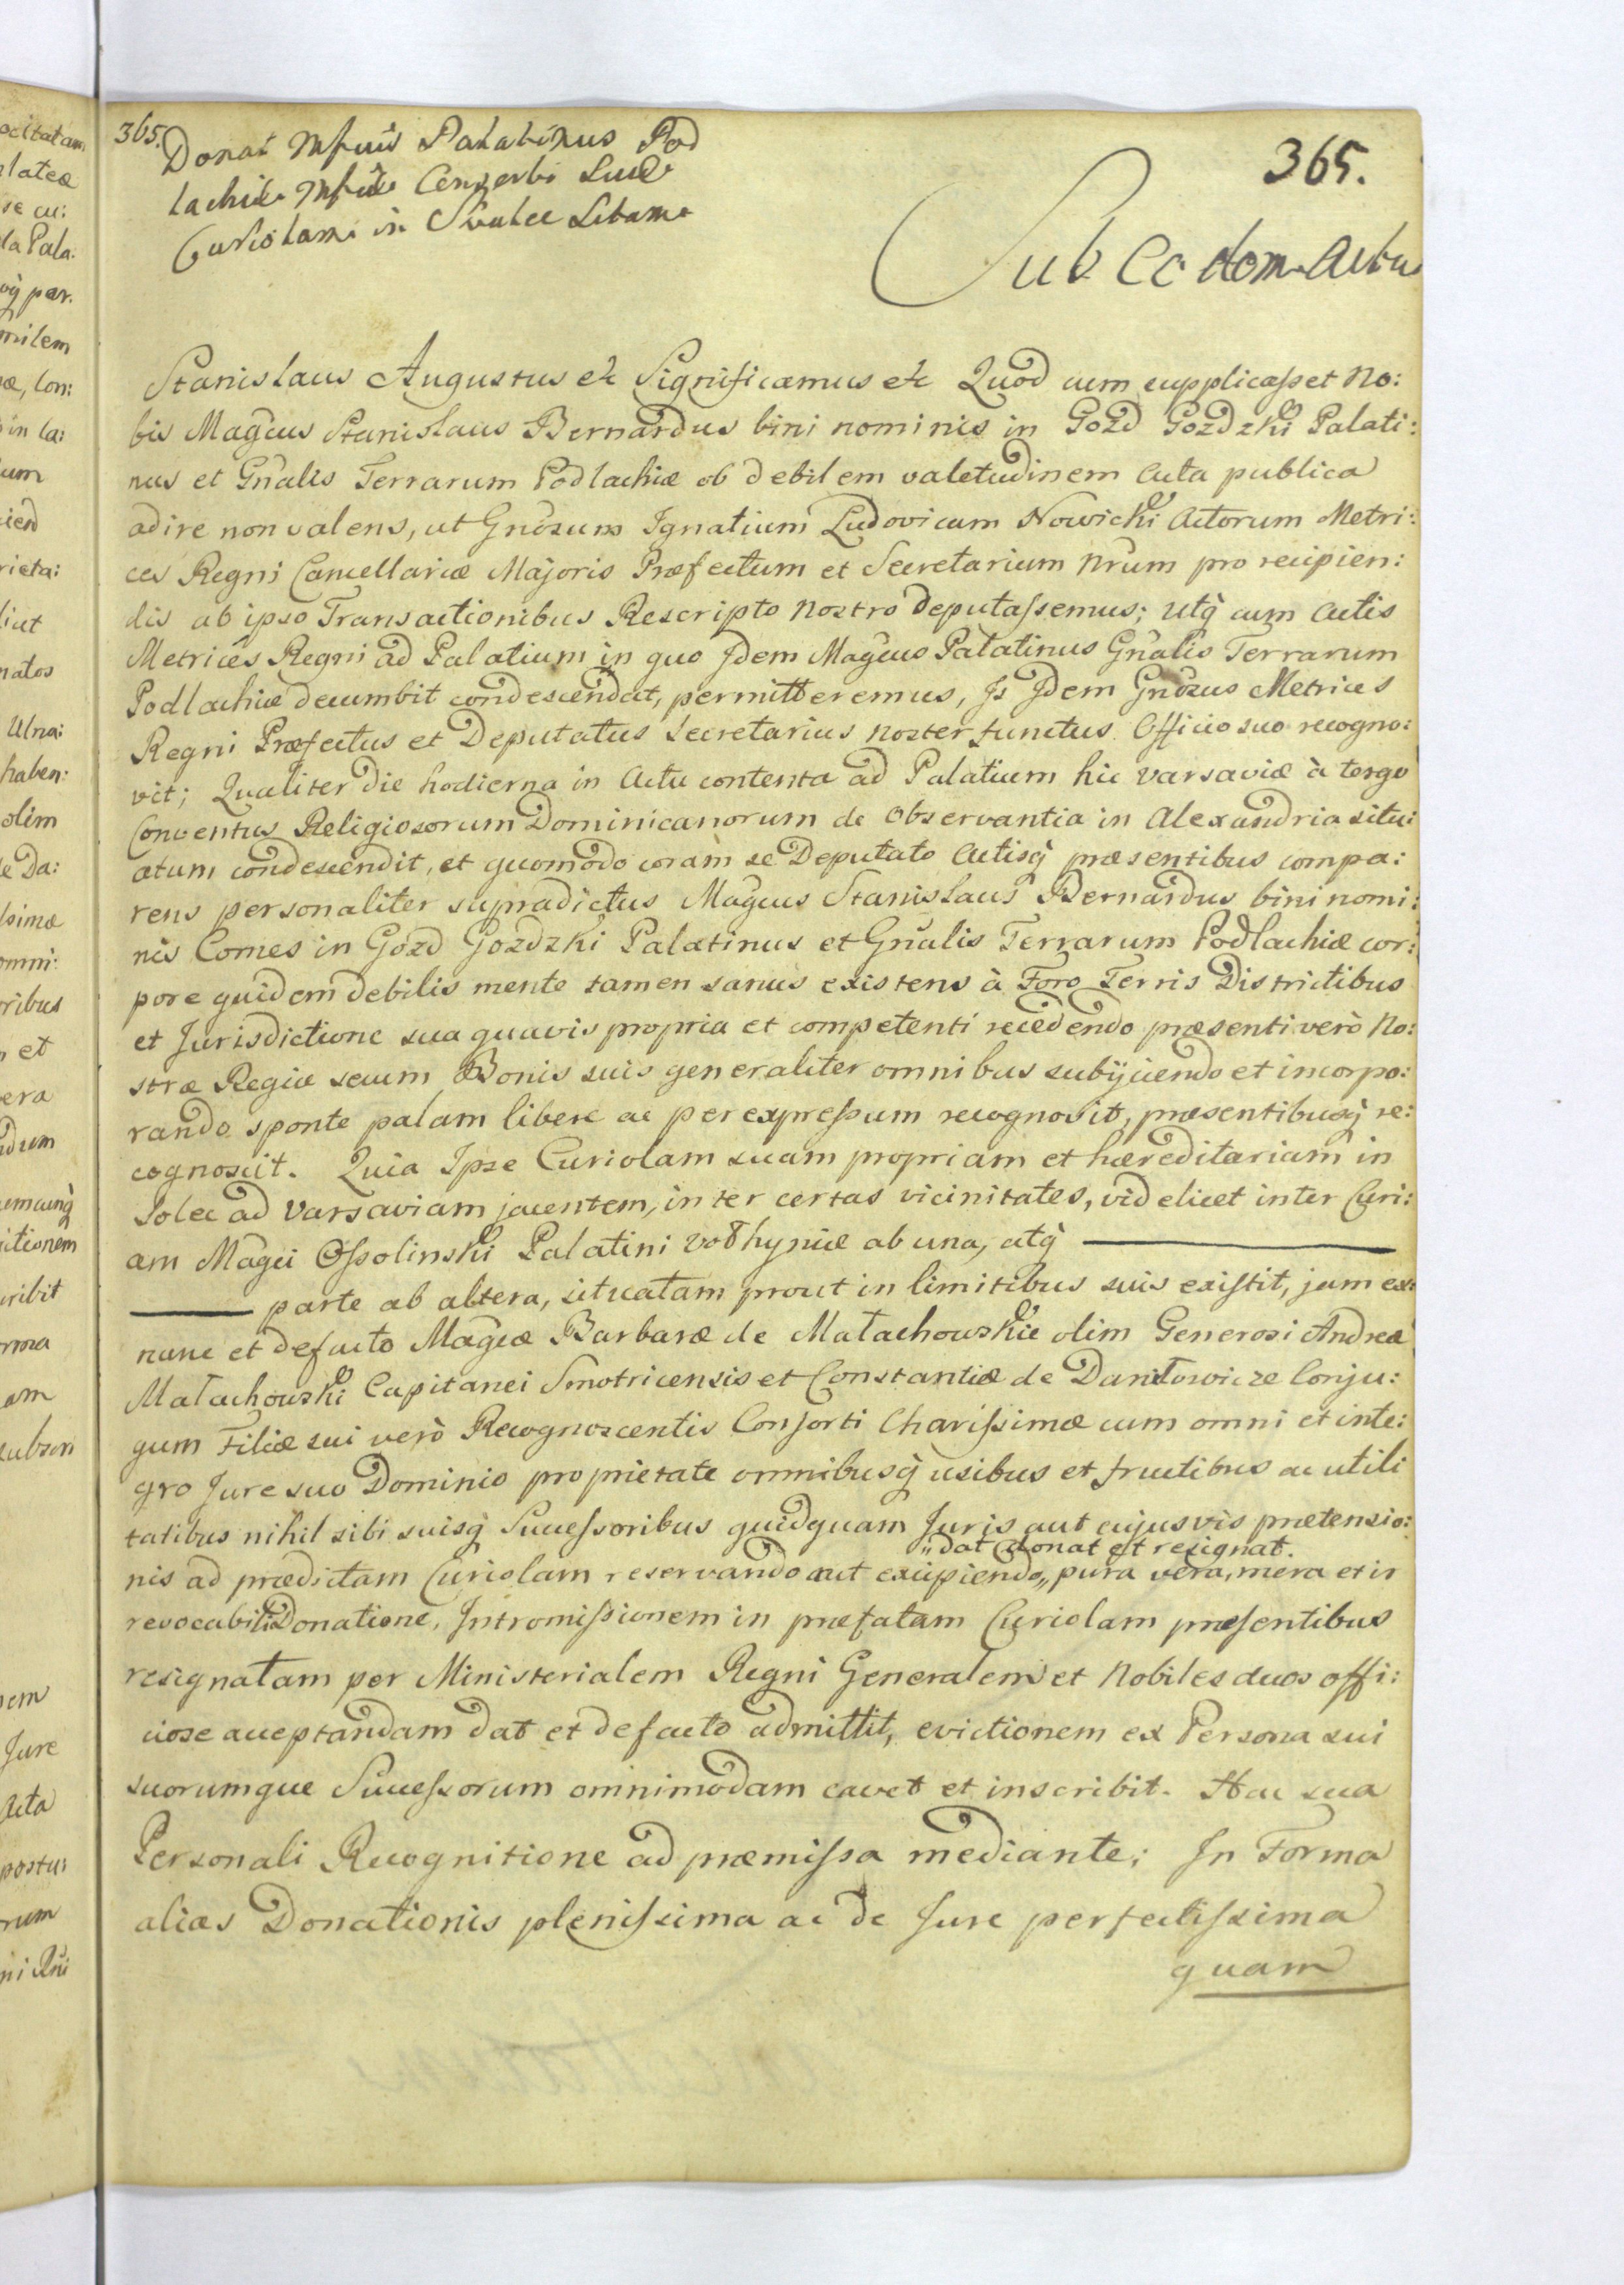 365.
Donat Mfcus Palatinus Pod
lachiæ Mfcæ Consorti Suæ
Curiolam in Solec Sitam
365.
Sub Eodem Actu
Stanislaus Augustus etc Significamus etc Quod cum supplicasset No:
bis Magcus Stanislaus Bernardus bini nominis in Gozd Gozdzki Palati:
nus et Gñalis Terrarum Podlachiæ ob debilem valetudinem Acta publica
adire non valens, ut Gñosum Ignatium Ludovicum Nowicki Actorum Metri:
ces Regni Cancellariæ Majoris Præfectum et Secretarium Nrum pro recipien:
dis ab ipso Transactionibus Rescripto Nostro deputassemus; Utq̀ cum Actis
Metrices Regni ad Palatium in quo Idem Magcus Palatinus Gñalis Terrarum
Podlachiæ decumbit condescendat, permitteremus, Is Idem Gñosus Metrices
Regni Præfectus et Deputatus Secretarius Noster functus Officio suo recogno:
vit; Qualiter die hodierna in Actu contenta ad Palatium hic Varsaviæ à tergo
Conventus Religiosorum Dominicanorum de Observantia in Alexandria situ:
atum condescendit, et quomodo coram se Deputato Actisq̀ præsentibus compa:
rens personaliter supradictus Magcus Stanislaus Bernardus bini nomi:
nis Comes in Gozd Gozdzki Palatinus et Gñalis Terrarum Podlachiæ cor:
pore quidem debilis mente tamen sanus existens à Foro Terris Districtibus
et Jurisdictione sua quavis propria et competenti recedendo præsenti verò No:
stræ Regiæ secum Bonis suis generaliter omnibus subijciendo et incorpo:
rando sponte palam libere ac per expressum recognovit, præsentibusq̀ re:
cognoscit. Quia Ipse Curiolam suam propriam et hæreditariam in
Solec ad Varsaviam jacentem, inter certas vicinitates, videlicet inter Curi:
am Magci Ossolinski Palatini Volhyniæ ab una, atq̀
parte ab altera, situatam prout in limitibus suis existit, jam ex:
nunc et defacto Magcæ Barbaræ de Małachowskie olim Generosi Andreæ
Małachowski Capitanei Smotricensis et Constantiæ de Daniłowicze Conju:
gum Filiæ sui verò Recognoscentis Consorti Charissimæ cum omni et inte:
gro Jure suo Dominio proprietate omnibusq̀ usibus et fructibus ac utili
tatibus nihil sibi suisq̀ Successoribus quidquam Juris aut cujusvis prætensio:
„dat donat et resignat.
nis ad prædictam Curiolam reservando aut excipiendo„ pura vera, mera et ir
revocabili Donatione, Intromissionem in præfatam Curiolam præsentibus
resignatam per Ministerialem Regni Generalem et Nobiles duos offi:
ciose acceptandam dat et defacto admittit, evictionem ex Persona sui
suorumque Successorum omnimodam cavet et inscribit. Hac sua
Personali Recognitione ad præmissa mediante; In Forma
alias Donationis plenissima ac de Jure perfectissima
quam